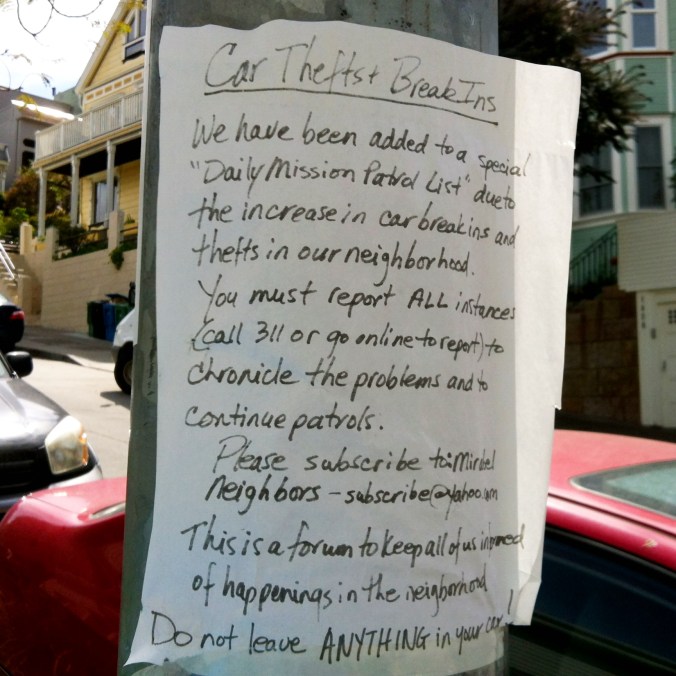 Car Thefts + Break Ins
We have been added to a special
"Daily Mission Patrol List" due to
the increase in car break ins and
thefts in our neighborhood.
You must report ALL instances
(call 311 or go online to report) to
chronicle the problems and to
continue patrols.
Please subscribe to: Mirabel
Neighbors - subscribe@yahoo.com
This is a forum to keep all of us informed
of happenings in the neighborhood
Do not leave ANYTHING in your car!